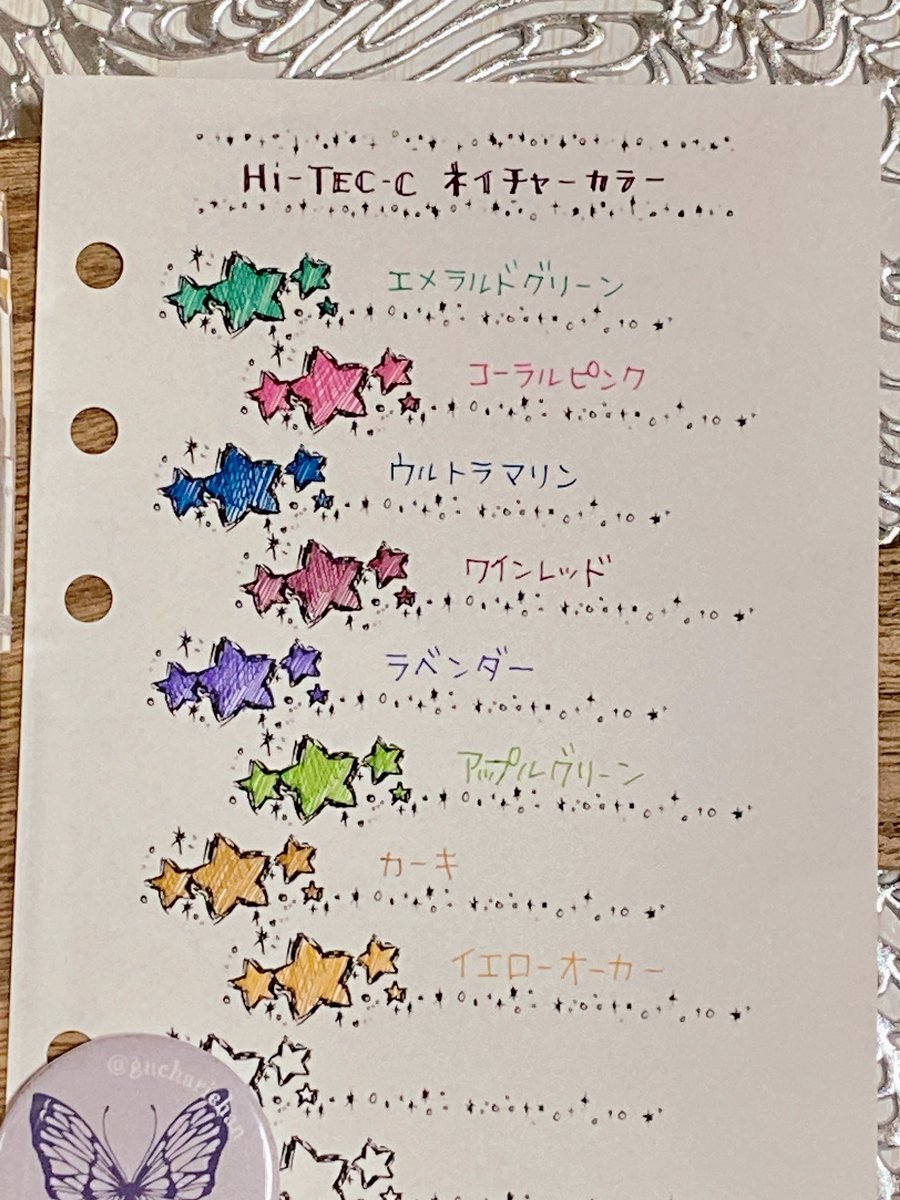 Hi-TEC-C ネイチャーカラー
エメラルドグリーン
コーラルピンク
ウルトラマリン
ワインレッド
ラベンダー
アップルグリーン
カーキ
イエローオーカー